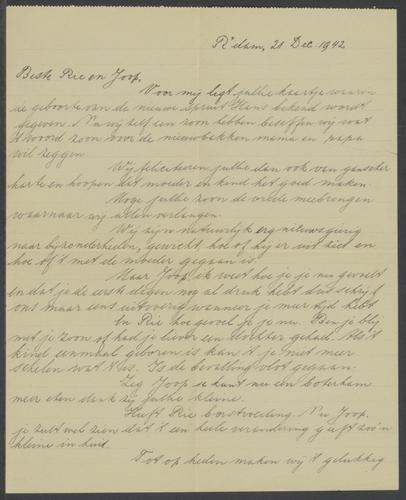 R'dam, 21 Dec. 1942
Beste Rie en Joop,
Voor mij ligt jullie kaartje waarin
de geboorte van de nieuwe spruit Hans bekend wordt
gegeven. Nu wij zelf een zoon hebben beseffen wij wat
't woord zoon voor de nieuwbakken mama en papa
wil zeggen.
Wij feliciteren jullie dan ook van ganscher
harte en hoopen dat moeder en kind het goed maken.
Moge jullie zoon de vrede meebrengen
waarnaar wij allen verlangen.
Wij zijn natuurlijk erg nieuwsgierig
naar bijzonderheden, gewicht, hoe of hij er uit ziet en
hoe of 't met de moeder gegaan is.
Maar Joop, ik weet hoe je je nu gevoelt
en dat je de eerste dagen nog al druk hebt dus schrijf
ons maar eens uitvoerig wanneer je meer tijd hebt
En Rie hoe gevoel je je nu. Ben je blij
met je zoon of had je liever een dochter gehad. Als 't
kind eenmaal geboren is kan 't je niet meer
schelen wat 't is. Is de bevalling vlot gegaan.
Zeg Joop je kunt nu een boterham
meer eten dank zij jullie kleine.
Heeft Rie borstvoeding. Nu Joop,
je zult wel zien dat 't een heele verandering geeft zoo'n
kleine in huis.
Tot op heden maken wij 't gelukkig